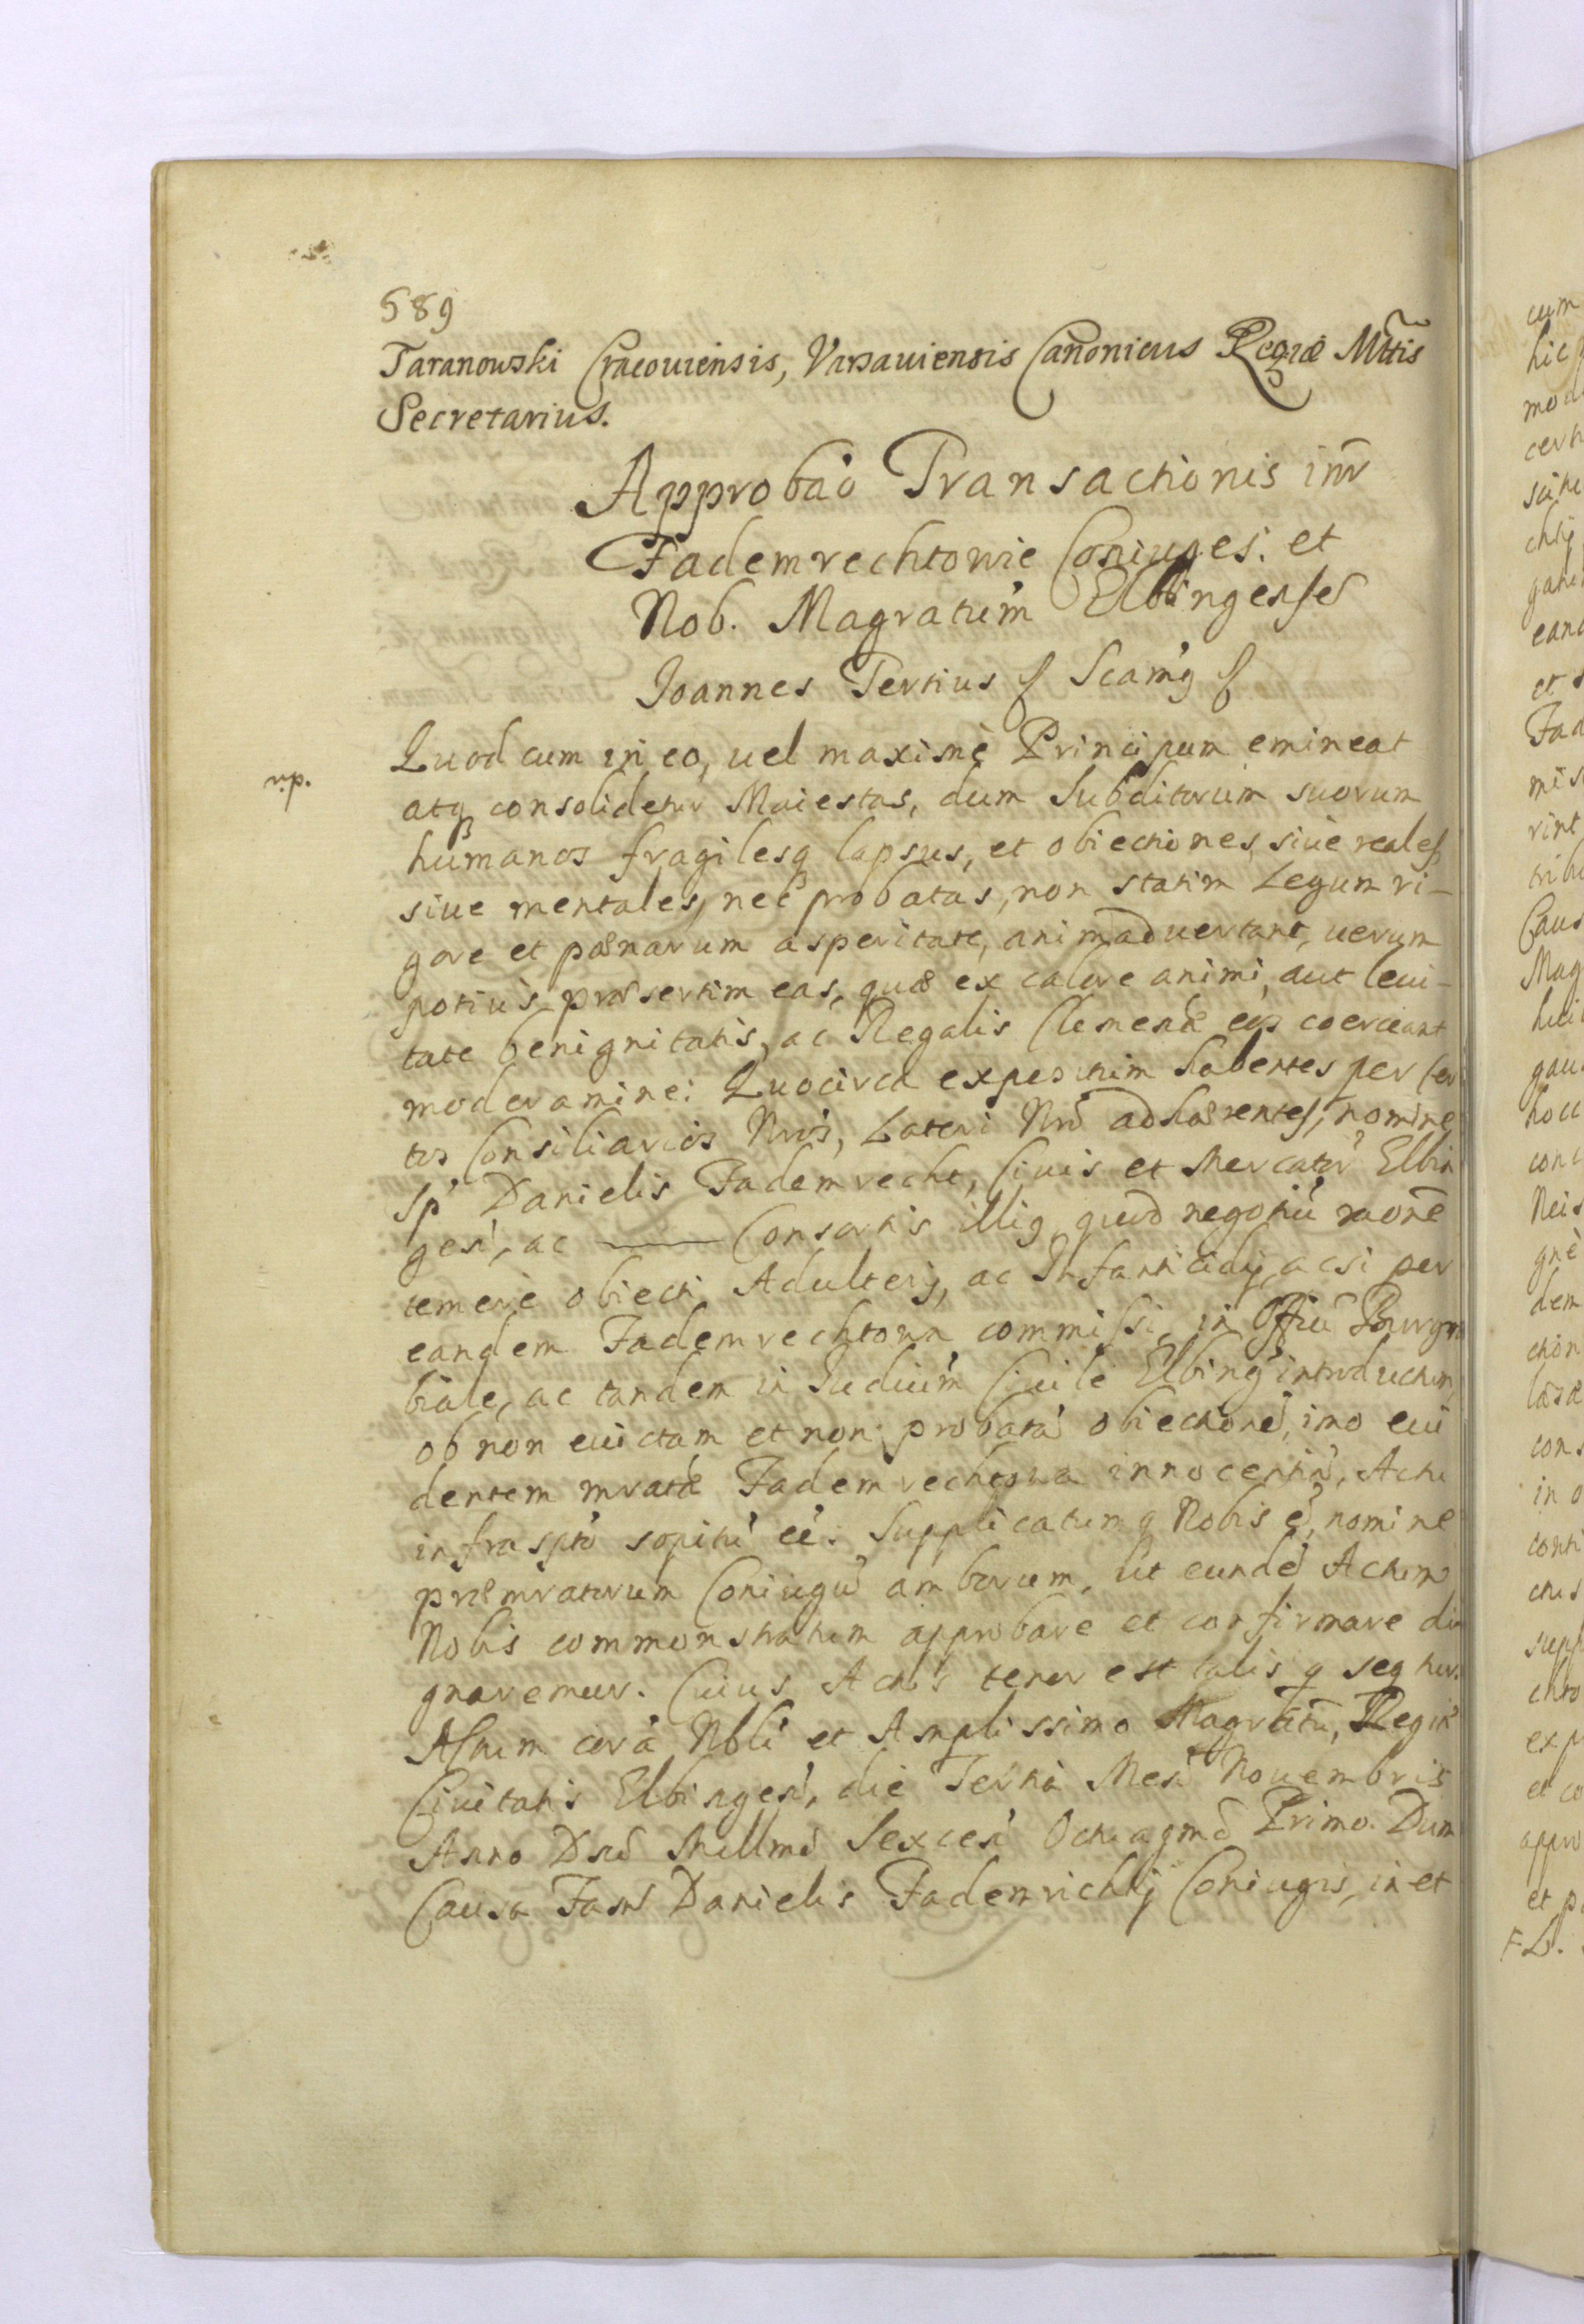 589
Taranowski Cracouiensis, Varsauiensis Canonicus Regiæ Mttis
Secretarius.
Approbao Transactionis intr
Fademrechtowie Coniuges. et
Nob. Magratum Elbingenses
Joannes Tertius Scamg
Quod cum in eo, uel maximè Principum emineat
atq consolidetur Maiestas, dum Subditorum suorum
humanos fragilesq lapsus, et obiectiones, siue reales,
siue mentales, nec probatas, non statim Legum ri-
gore et pœnarum asperitate, animaduertant, uerum
potius præsertim eas, quæ ex calore animi, aut leui-
tate benignitatis, ac Regalis Clemenæ eos coerceant
moderamine: Quocirca expositum habentes per cer
tos Consiliarios Nros, Lateri Nro adhærentes, nomine
Sp Danielis Fademrecht, Ciuis et Mercator Elbin
gesi, ac Consortis illig, quod negotiu raone
temerè obiecti Adulterij, ac Infanticidij acsi per
eandem Fademrechtowa commissi, in Offiu Burgra
biale, ac tandem in Judiium Ciuile Elbing introductum
ob non euictam et non probata obiectione, imo eui
dentem mrata Fademrechtowa innocentia, Actu
infraspto sopitu ee: Supplicatumq Nobis e, nomine
præmratorum Coniugu amborum, ut eunde Actum
Nobis commonstratum approbare et confirmare di
gnaremur. Cuius Actus tenor est talis q seqtur.
Actum cora Nbli et Amplissimo Magratu, Regia
Ciuitatis Elbingesi, die Tertia Mesi Nouembris
Anno Dni Millmo Sexcesi Octuagmo Primo. Dum
Causa Fam Danielis Fademrichtij Coniugis, in et